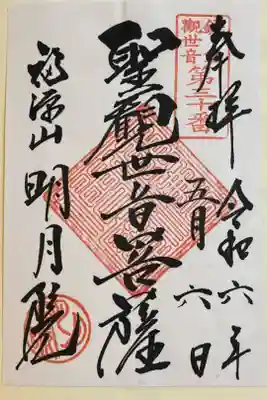 奉拝
令和六年
五月六日
鎌倉
觀世音第三十番
聖觀世音菩薩
福源山
明月院